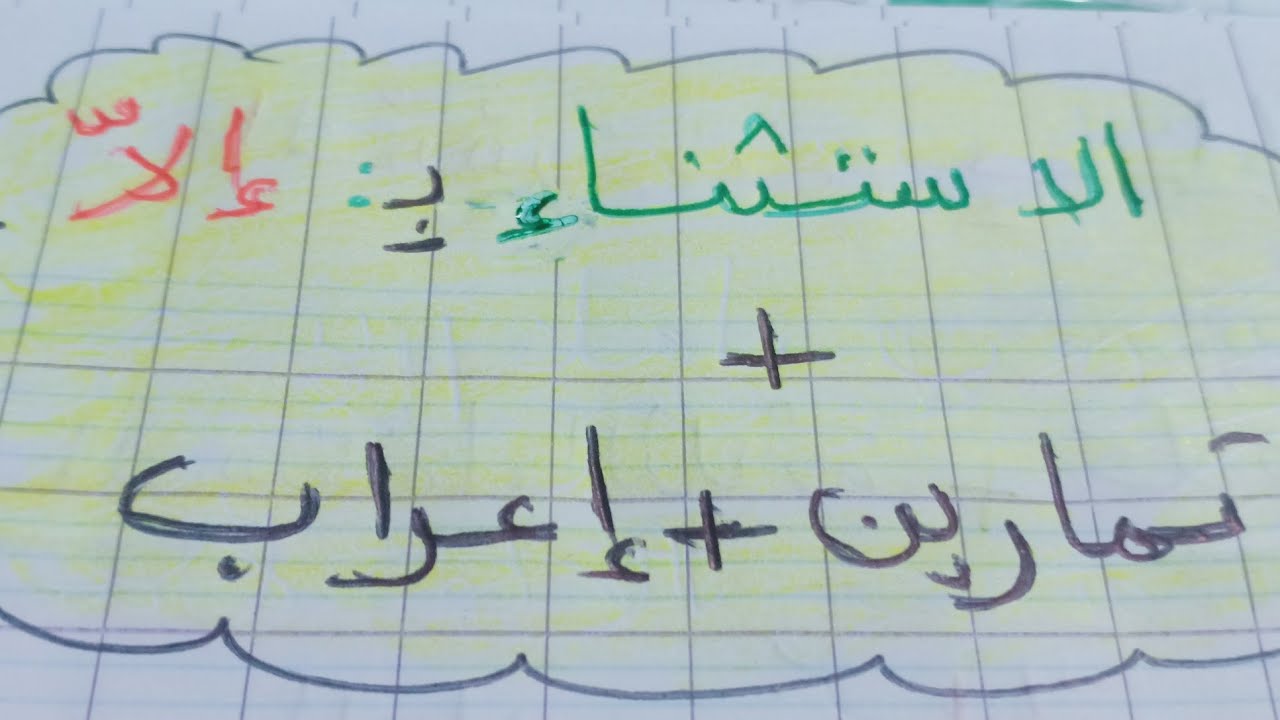 الاستثناء بـ: إلاّ
+
تمارين + إعراب